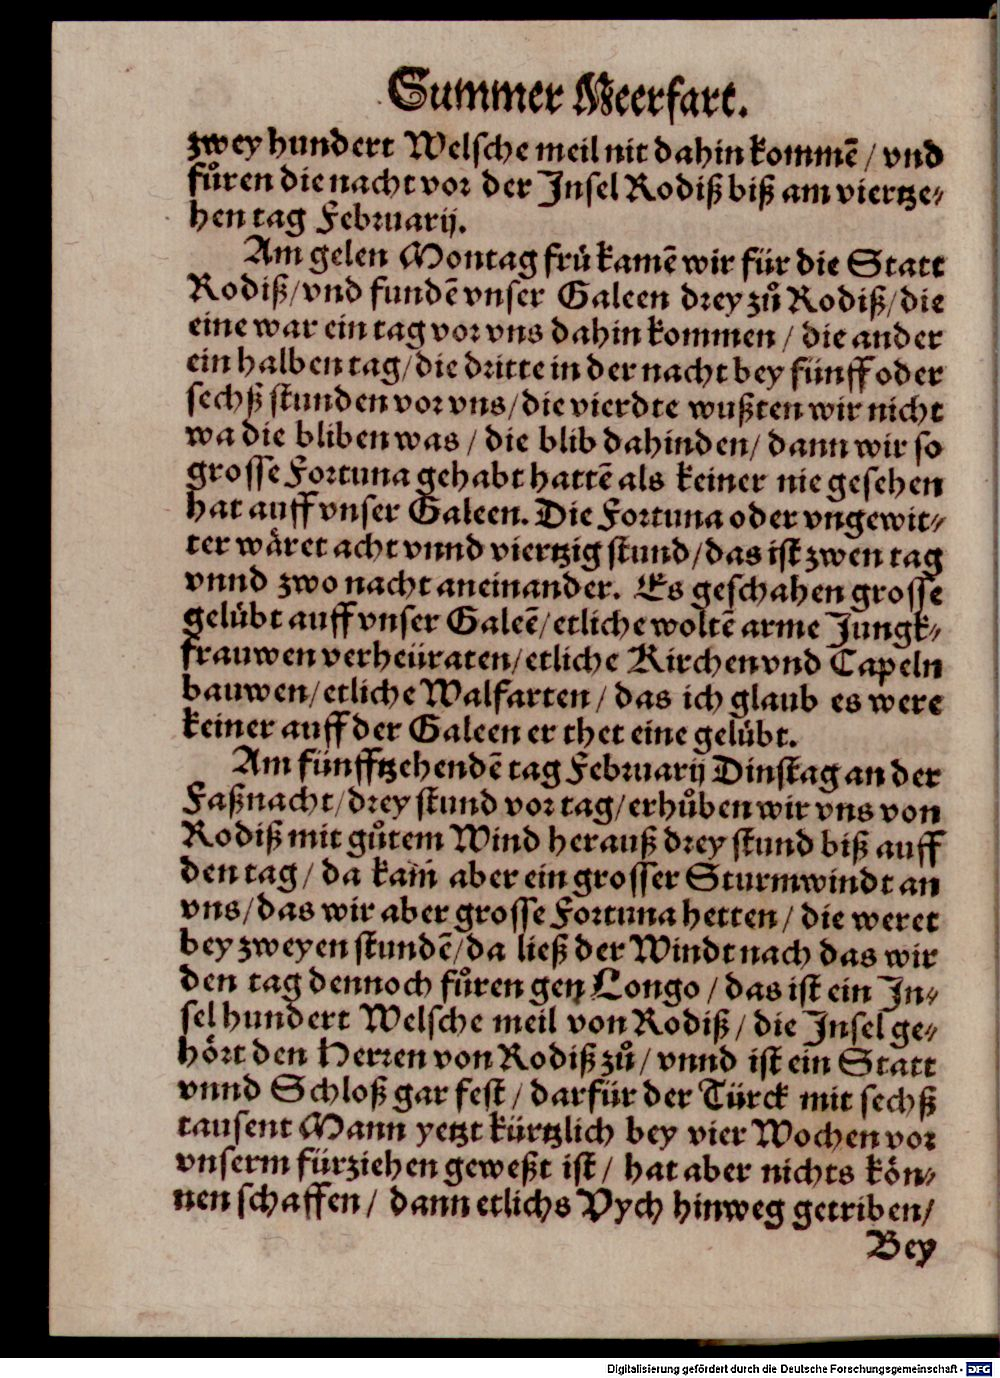 Summer Meerfart.
zwey hundert Welsche meil nit dahin kommē / vnd
fůren die nacht vor der Insel Rodiß biß am viertze⸗
hen tag Februarij.
Am gelen Montag frü kamē wir für die Statt
Rodiß/vnd fundē vnser Galeen drey zů Rodiß/die
eine war ein tag vor vns dahin kommen / die ander
ein halben tag/die dritte in der nacht bey fünff oder
sechß stunden vor vns/die vierdte wußten wir nicht
wa die bliben was / die blib dahinden/ dann wir so
grosse Fortuna gehabt hattē als keiner nie gesehen
hat auff vnser Galeen. Die Fortuna oder vngewit⸗
ter wäret acht vnnd viertzig stund/das ist zwen tag
vnnd zwo nacht aneinander. Es geschahen grosse
gelübt auff vnser Galeē/etliche woltē arme Jungk⸗
frauwen verheüraten/etliche Kirchen vnd Capeln
bauwen/etliche Walfarten / das ich glaub es were
keiner auff der Galeen er thet eine gelübt.
Am fünfftzehendē tag Februarij Dinstag an der
Faßnacht/drey stund vor tag/erhůben wir vns von
Rodiß mit gůtem Wind herauß drey stund biß auff
den tag / da kam̄ aber ein grosser Sturmwindt an
vns/das wir aber grosse Fortuna hetten / die weret
bey zweyen stundē/da ließ der Windt nach das wir
den tag dennoch fůren gen Longo / das ist ein In⸗
sel hundert Welsche meil von Rodiß / die Insel ge⸗
hört den Herren von Rodiß zů / vnnd ist ein Statt
vnnd Schloß gar fest / darfür der Türck mit sechß
tausent Mann yetzt kürtzlich bey vier Wochen vor
vnserm fürziehen geweßt ist / hat aber nichts kön⸗
nen schaffen / dann etlichs Vych hinweg getriben/
Bey
Digitalisierung gefördert durch die Deutsche Forschungsgemeinschaft - DFG